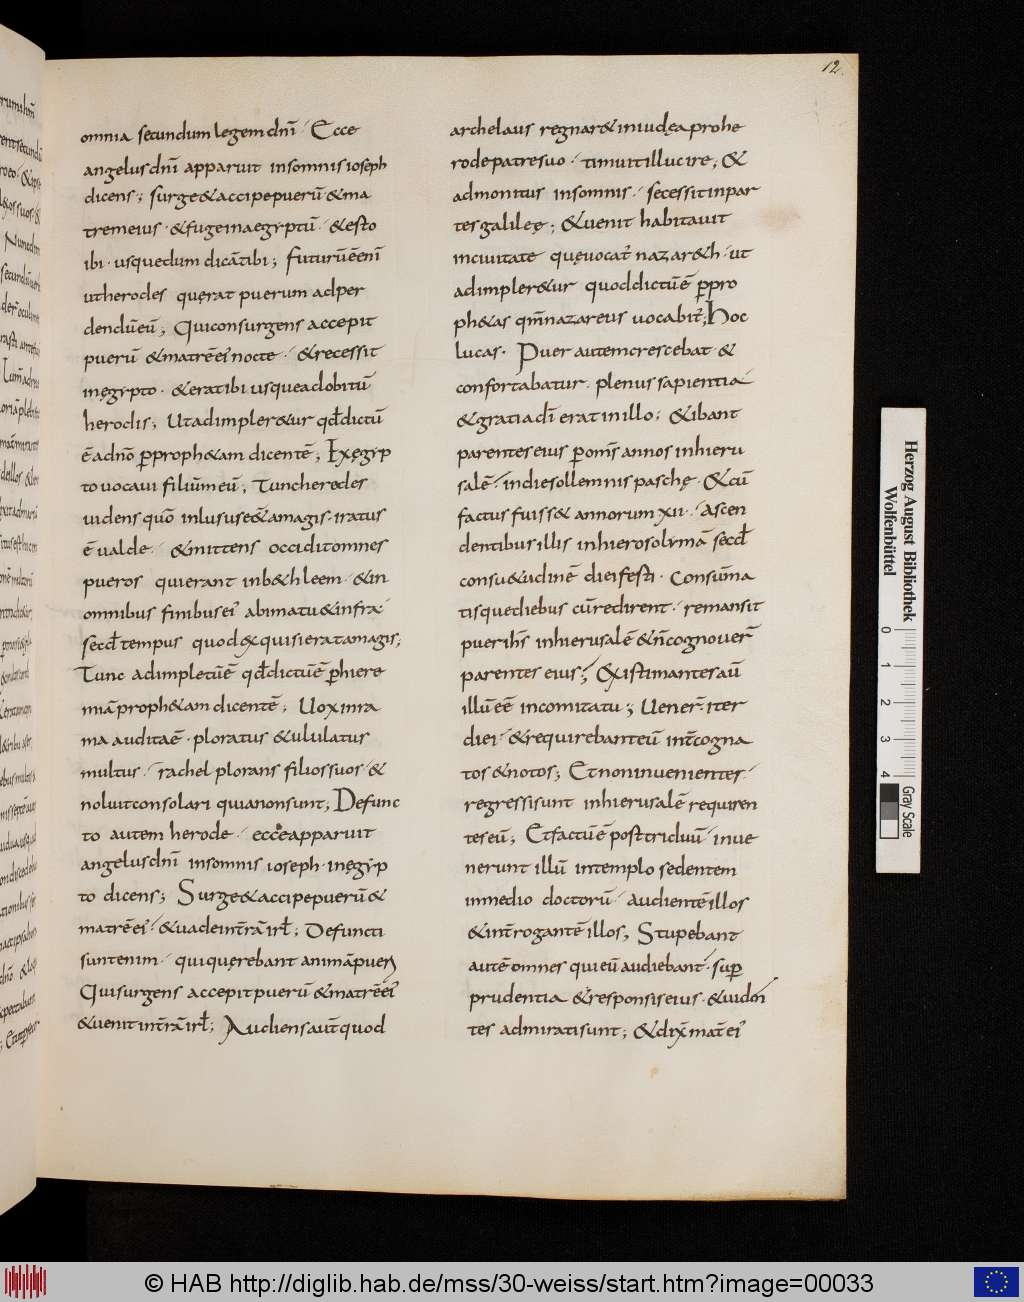 12.
omnia secundum legem dnī · Ecce
angelus dnī apparuit insomnis ioseph
dicens; surge & accipe puerū & ma
trem eius · & fuge in aegyptū · & esto
ibi · usque dum dicā tibi; futurū ē enī
ut herodes quęrat puerum ad per
dendū eū; Qui consurgens accepit
puerū & matrē eī nocte · & recessit
in ęgypto · & erat ibi usque ad obitū
herodis; Ut adimpler&ur qđ dictū
ē a dnō p̄ proph&am dicentē; Ex ęgyp
to uocaui filiū meū; Tunc herodes
uidens quō inlusus e&̄ a magis · iratus
ē ualde · & mittens occidit omnes
pueros qui erant in b&hleem · & in
omnibus finibus eī a bimatu & infra
sēcđ tempus quod exquisierat a magis;
Tunc adimpletū ē qđ dictū ē p̄ hiere
miā proph&am dicentē; Uox in ra
ma audita ē · ploratus & ululatus
multus · rachel plorans filios suos · &
noluit consolari quia non sunt; Defunc
to autem herode · ecce apparuit
angelus dnī insomnis ioseph · in ęgyp
to dicens; Surge & accipe puerū &
matrē eī · & uade in tr̄a irł; Defuncti
sunt enim · qui quęrebant animā pueri
Qui surgens accepit puerū & matrē eī
& uenit in tr̄a irł; Audiens aut̄ quod
archelaus regnar& in iudęa pro he
rode patre suo · timuit illuc ire; &
admonitus insomnis · secessit in par
tes galileę; & uenit habitauit
in ciuitate quę uocat̄ nazar&h · ut
adimpler&ur quod dictū ē p̄ pro
ph&as qm̄ nazareus uocabit̄; Hoc
lucas · Puer autem crescebat · &
confortabatur · plenus sapientia
& gratia dī erat in illo; & ibant
parentes eius p̄ om̄s annos in hieru
salē · in die sollemnis paschę · & cū
factus fuiss& annorum xii · Ascen
dentibus illis in hierosolymā sēcđ
consu&udinē diei festi · Consūma
tisque diebus cū redirent · remansit
puer ih̄s in hierusalē & n̄ cognouer̄
parentes eius; Existimantes aū
illū eē in comitatu; Uener̄ iter
diei · & requirebant eū int̄ cogna
tos & notos; Et non inuenientes ·
regressi sunt in hierusalē requiren
tes eū; Et factū ē post triduū · inue
nerunt illū in templo sedentem
in medio doctorū · Audientē illos
& int̄rogantē illos; Stupebant
autē omnes qui eū audiebant · sup̄
prudentia & responsis eius · & uiden
tes admirati sunt; & dix̄ mat̄ eī
Herzog August Bibliothek
Wolfenbüttel
0 1 2 3 4
Gray Scale
© HAB http://diglib.hab.de/mss/30-weiss/start.htm?image=00033